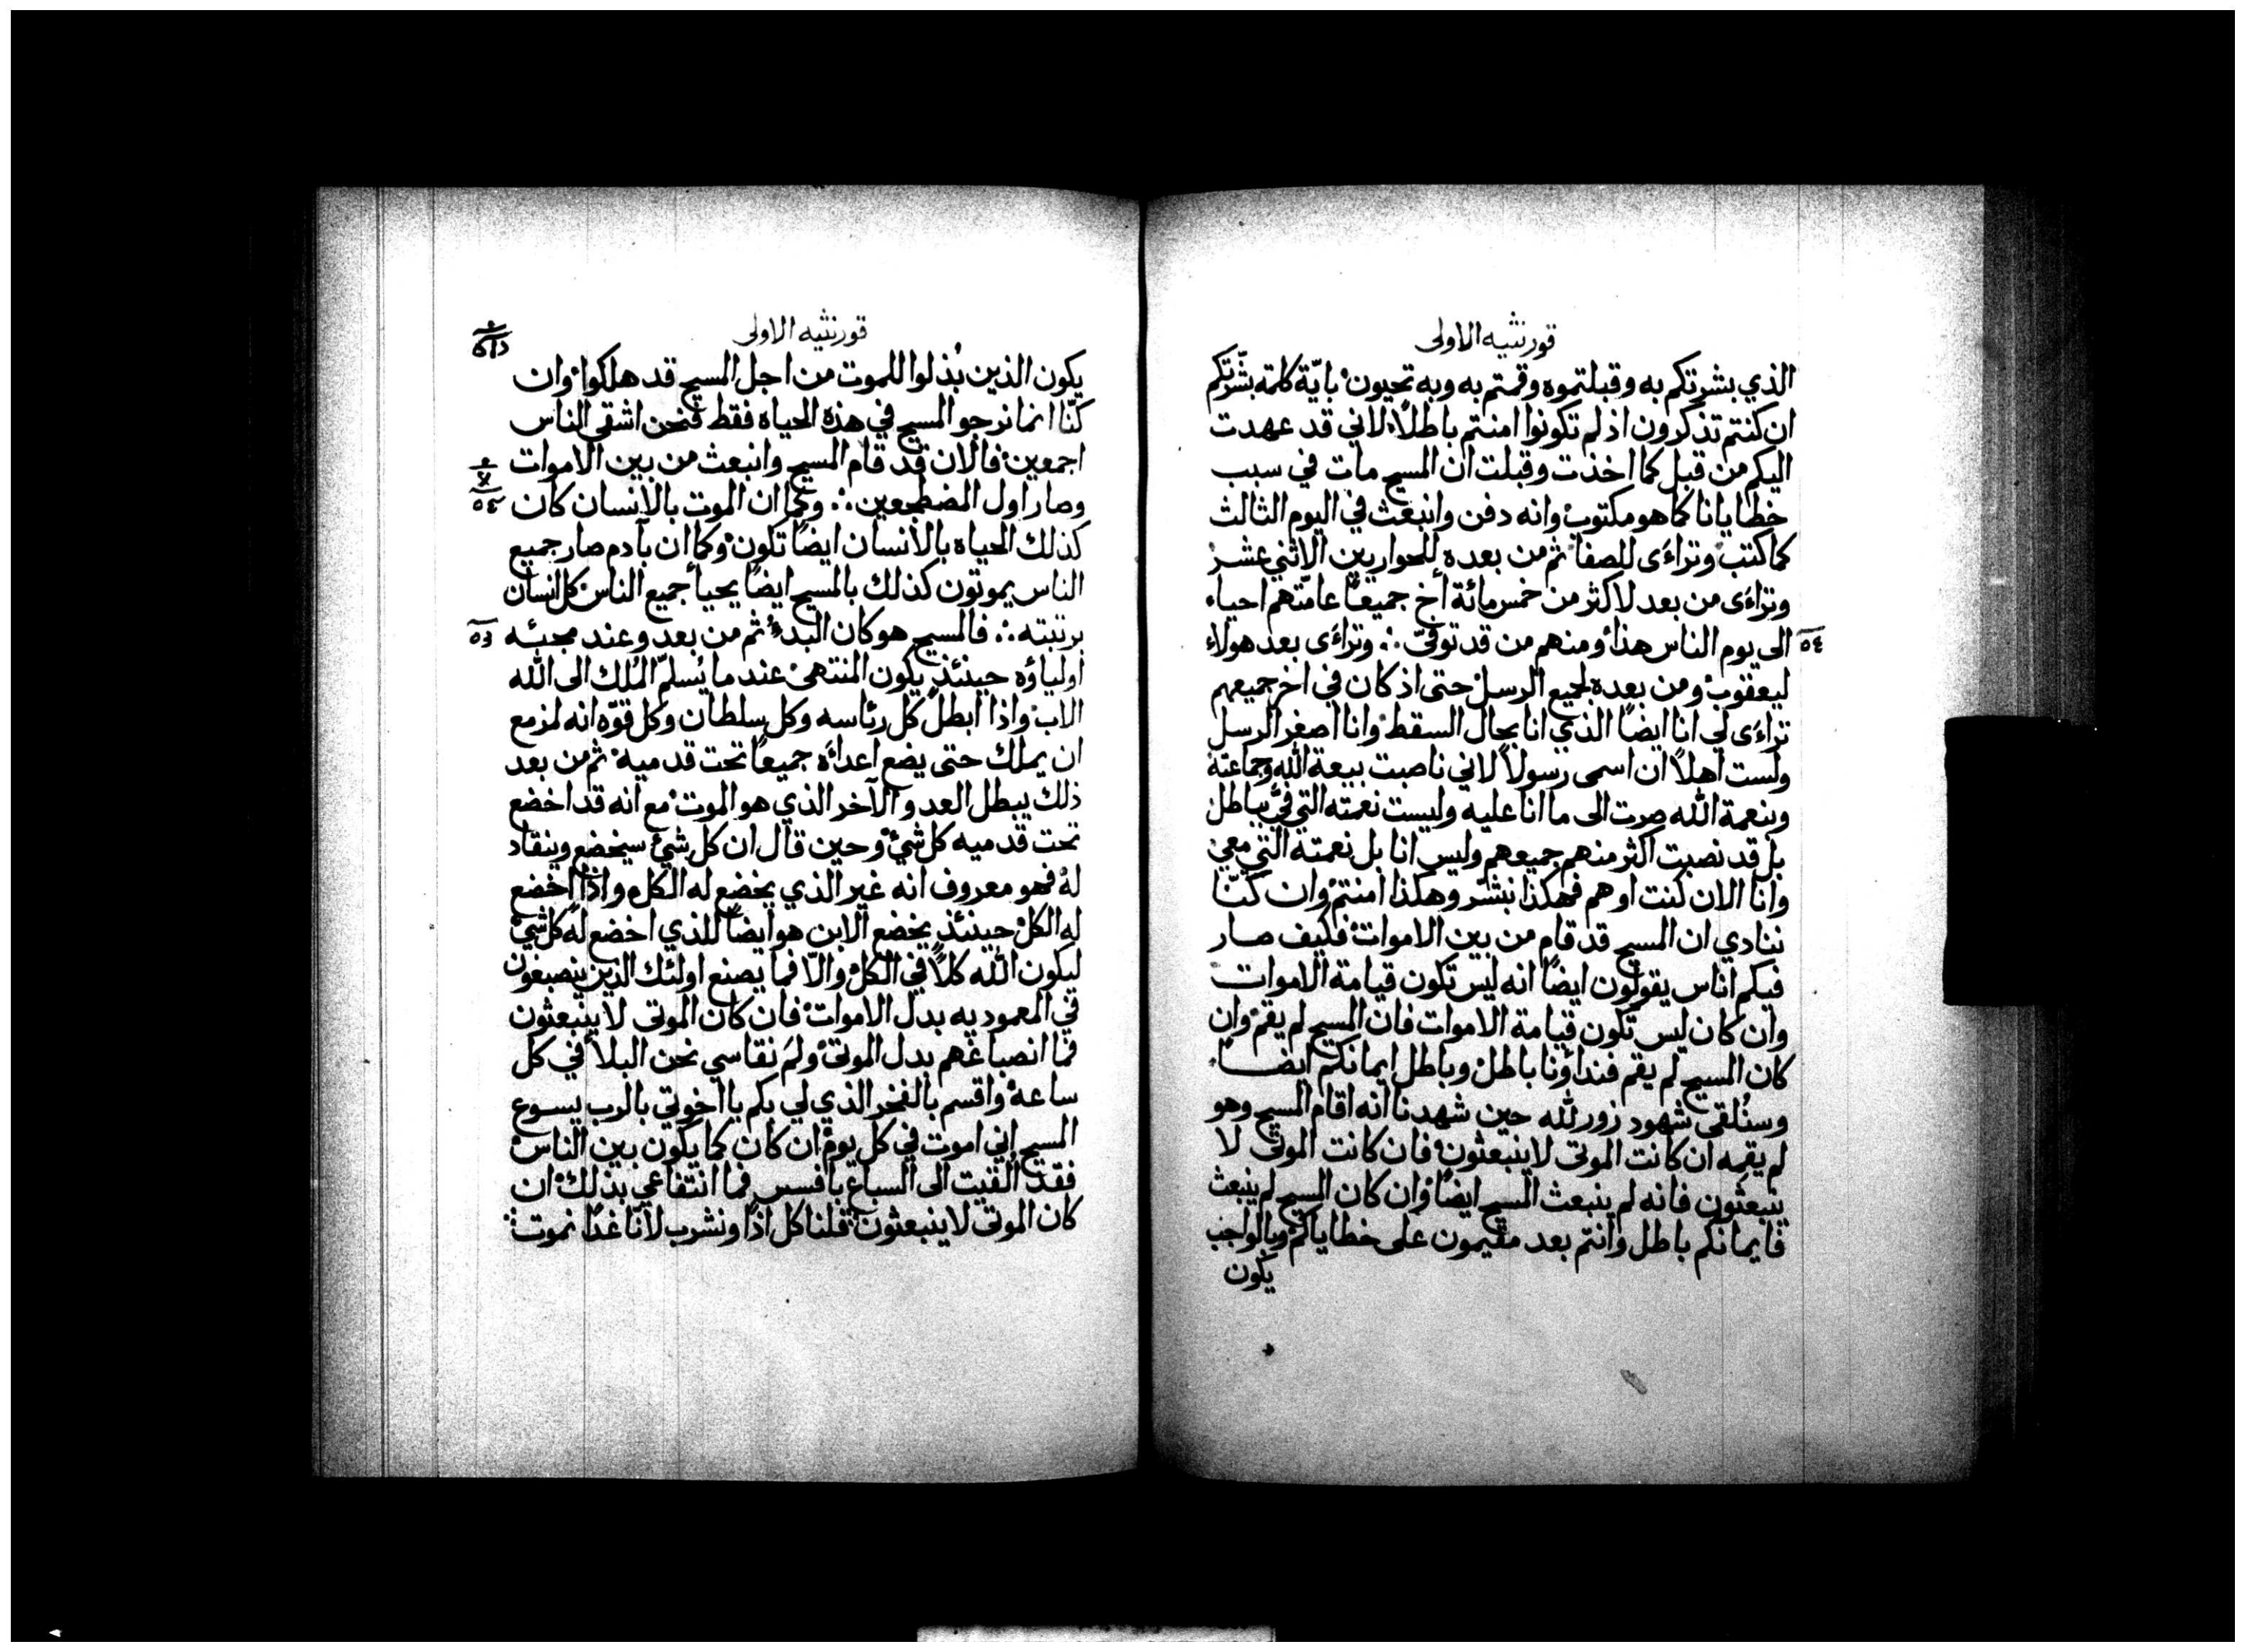 قورنثيه الاولى
الذي بشرتكم به وقبلتموه وقمتم به وبه تحيون باية كلمه بشرتكم
ان كنتم تذكرون اذ لم تكونوا امنتم باطلاً لاني قد عهدت
اليكم من قبل كما اخذت وقبلت ان المسيح مات في سبب
خطايانا كما هو مكتوب وانه دفن وانبعث في اليوم الثالث
كما كتب وتراءى للصفا ثم من بعده للحواريين الاثني عشر
وتراءى من بعد لاكثر من خمس مائة أخ جميعاً عامتهم احياء
الى يوم الناس هذا ومنهم من قد توفى ∴ وتراءى بعد هولاء
٥٤
ليعقوب ومن بعده لجميع الرسل حتى اذ كان في اخر جميعهم
تراءى لي انا ايضاً الذي انا بحال السقط وانا اصغر الرسل
ولست اهلاً ان اسمى رسولاً لاني ناصبت بيعة الله وجماعته
وبنعمة الله صرت الى ما انا عليه وليست نعمته التي فيّ بباطل
بل قد نصبت اكثر منهم جميعهم وليس انا بل نعمته التي معي
وانا الان كنت او هم فهكذا نبشر وهكذا امنتم وان كنّا
ننادي ان المسيح قد قام من بين الاموات فكيف صار
فيكم اناس يقولون ايضاً انه ليس تكون قيامة الاموات
وان كان ليس تكون قيامة الاموات فان المسيح لم يقم وان
كان المسيح لم يقم فنداؤنا باطل وباطل ايمانكم ايضاً
وسنُلقى شهود زور لله حين شهدنا انه اقام المسيح وهو
لم يقمه ان كانت الموتى لا ينبعثون فان كانت الموتى لا
ينبعثون فانه لم ينبعث المسيح ايضاً وان كان المسيح لم ينبعث
فايمانكم باطل وانتم بعد مقيمون على خطاياكم وبالواجب
يكون
قورنثيه الاولى
يكون الذين بُذلوا للموت من اجل المسيح قد هلكوا وان
كنّا انما نرجو المسيح في هذه الحياه فقط فنحن اشقى الناس
اجمعين فالان قد قام المسيح وانبعث من بين الاموات
وصار اول المضطجعين ∴ وكما ان الموت بالانسان كان
كذلك الحياه بالانسان ايضاً تكون وكما ان بآدم صار جميع
الناس يموتون كذلك بالمسيح ايضاً يحيا جميع الناس كل انسان
برتبته ∴ فالمسيح هو كان البدء ثم من بعد وعند مجئه
اولياؤه حينئذ يكون المنتهى عند ما يُسلّم المُلك الى الله
الاب واذا ابطل كل رئاسه وكل سلطان وكل قوّه انه لمزمع
ان يملك حتى يضع اعداءه جميعاً تحت قدميه ثم من بعد
ذلك يبطل العدو الآخر الذي هو الموت مع انه قد اخضع
تحت قدميه كل شئ وحين قال ان كل شئ سيخضع وينقاد
له فهو معروف انه غير الذي يخضع له الكل واذا اخضع
له الكل حينئذ يخضع الابن هو ايضاً للذي اخضع له كل شئ
ليكون الله كلاً في الكل والّا فما يصنع اولئك الذين ينصبغون
في المعموديه بدل الاموات فان كان الموتى لا ينبعثون
فما انصباغهم بدل الموتى ولمَ نقاسي نحن البلا في كل
ساعة واقسم بالفخر الذي لي بكم يا اخوتي بالرب يسوع
المسيح اني اموت في كل يوم ان كان كما يكون بين الناس
فقد القيت الى السباع بافسس فما انتفاعي بذلك ان
كان الموتى لا ينبعثون فلناكل اذاً ونشرب لانا غداً نموت